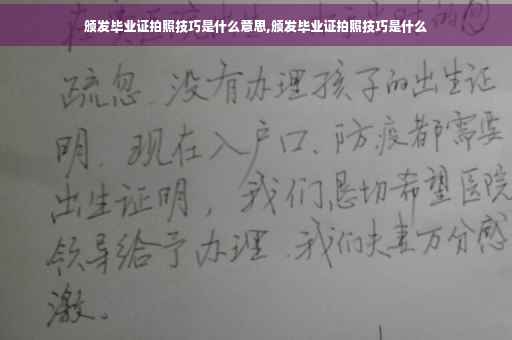 颁发毕业证拍照技巧是什么意思,颁发毕业证拍照技巧是什么
疏忽、没有办理孩子的出生证
明、现在入户口、防疫都需要
出生证明，我们恳切希望医院
领导给予办理、我们夫妻万分感
激。